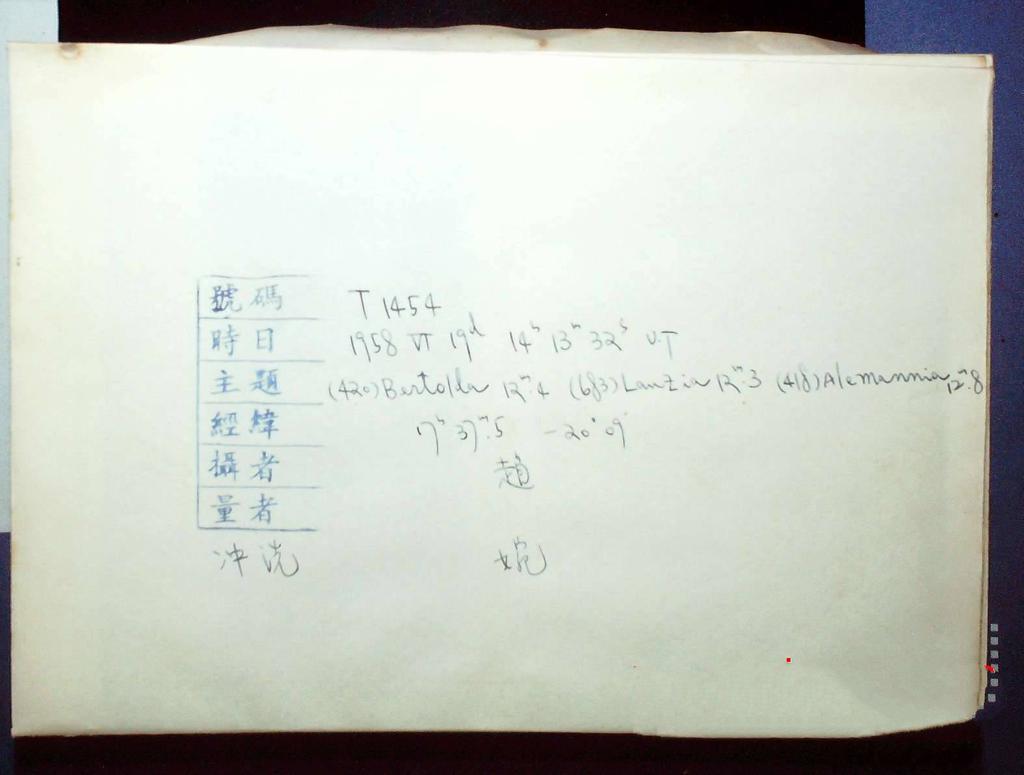 號碼 T 1454
時日 1958 VI 19ᵈ 14ʰ 13ᵐ 32ˢ U.T
主題 (420) Bertolla 12ᵐ.4 (683) Lanzia 12ᵐ.3 (418) Alemannia 12ᵐ.8
經緯 17ʰ 37ᵐ.5 -20°09'
攝者 趙
量者
冲洗 婉